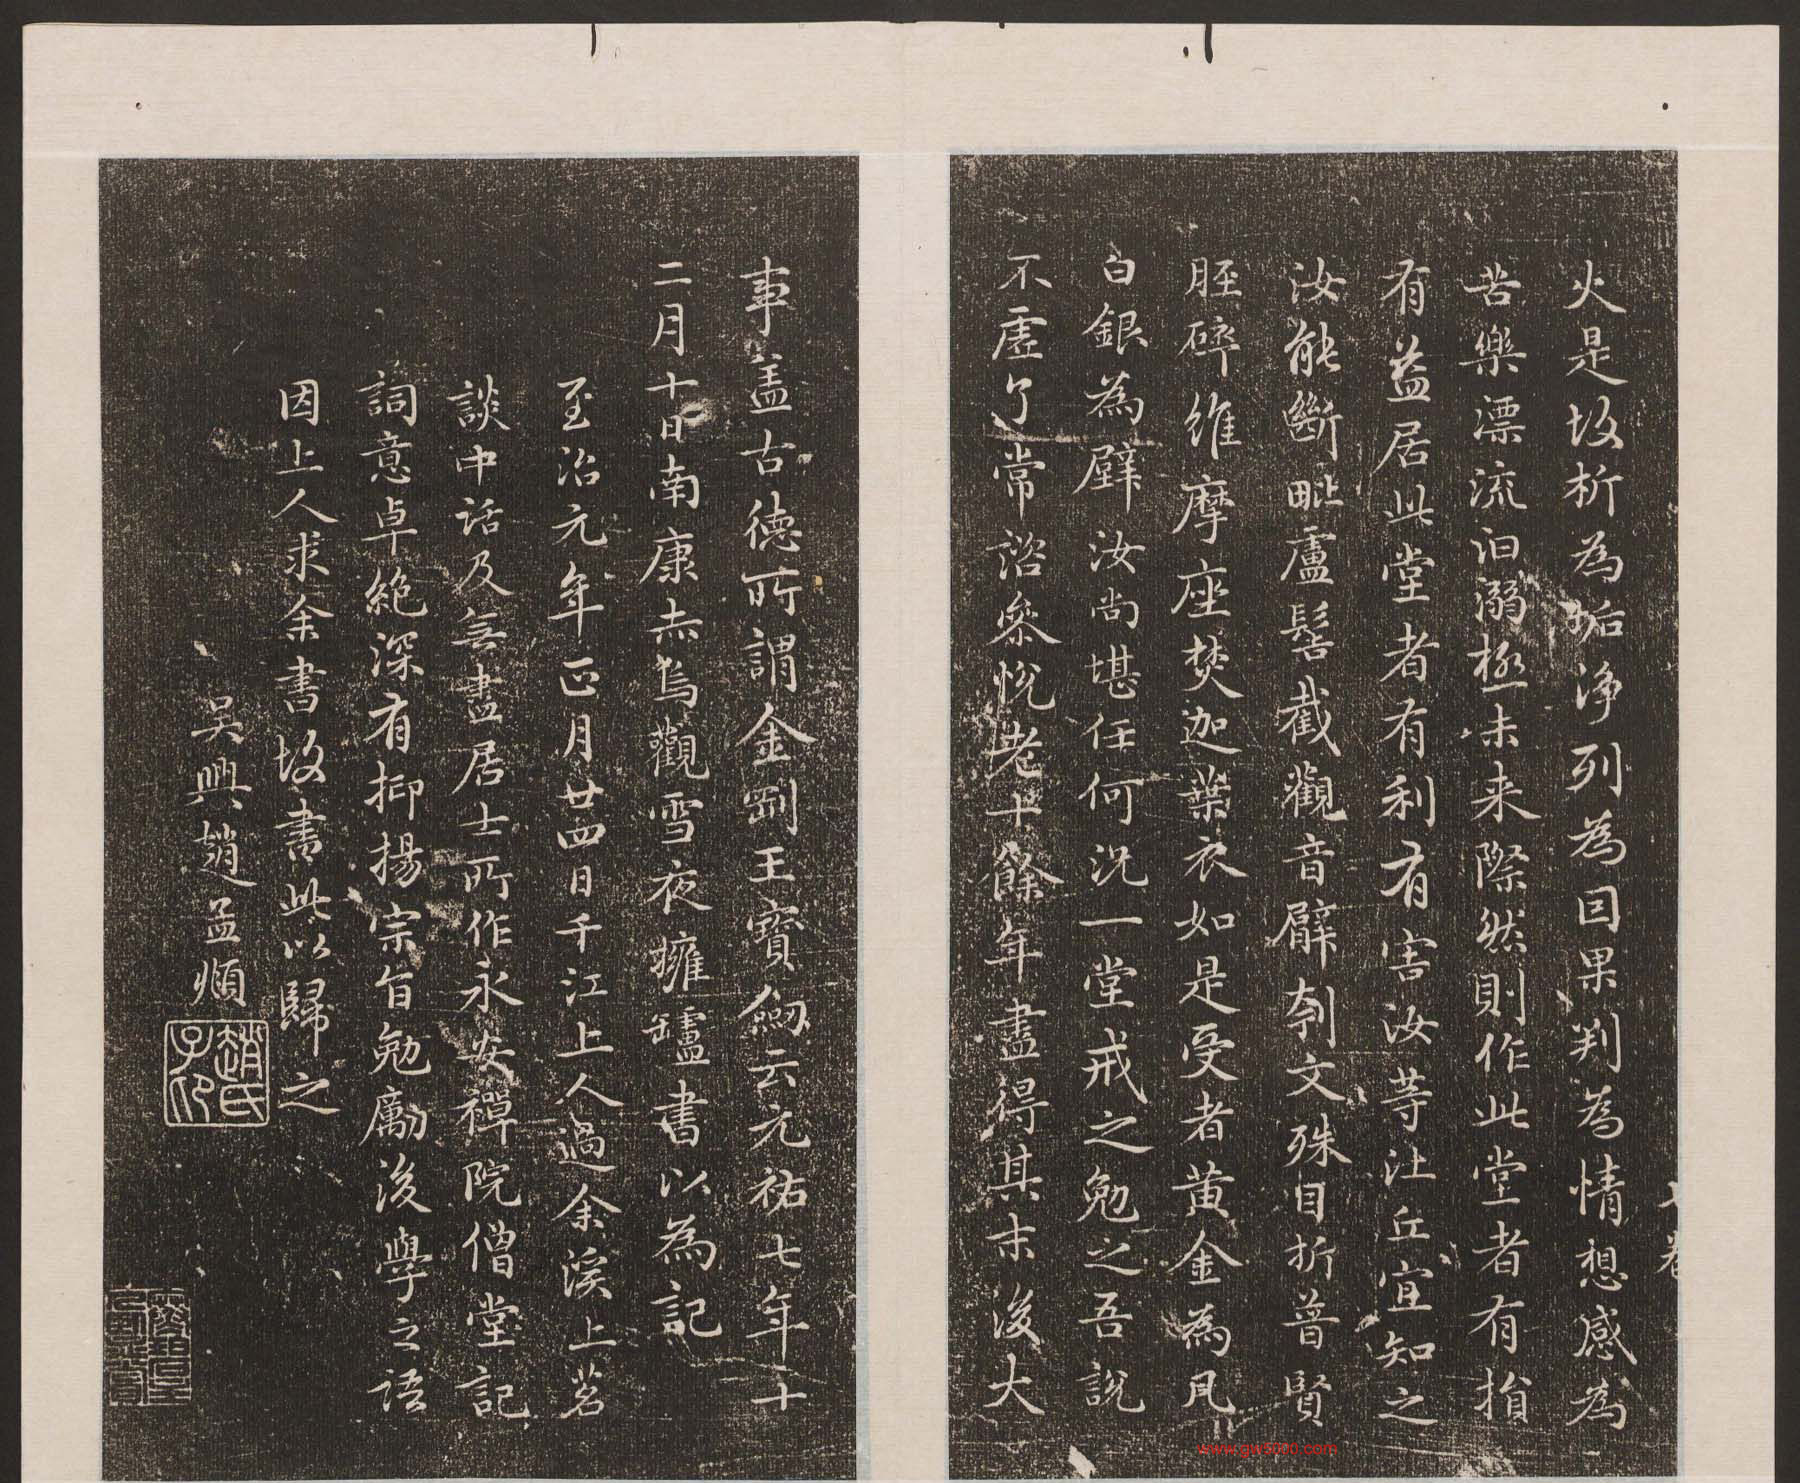 火是故析為垢淨列為因果判為情想感為
苦樂漂流汩溺極未来際然則作此堂者有損
有益居此堂者有利有害汝等比丘宜知之
汝能斷毗盧髻截觀音臂刳文殊目折普賢
脛碎維摩座焚迦葉衣如是受者黄金為凡
白銀為壁汝尚堪任何況一堂戒之勉之吾說
不虛了常諮叅悅老十餘年盡得其末後大
事盖古德所謂金剛王寶劒云元祐七年十
二月十日南康赤烏觀雪夜擁罏書以為記
至治元年正月廿四日千江上人過余溪上茗
談中話及無盡居士所作永安禪院僧堂記
詞意卓絶深有抑揚宗旨勉勵後學之語
因上人求余書故書此以歸之
吳興趙孟頫
趙氏子印
www.gw5000.com